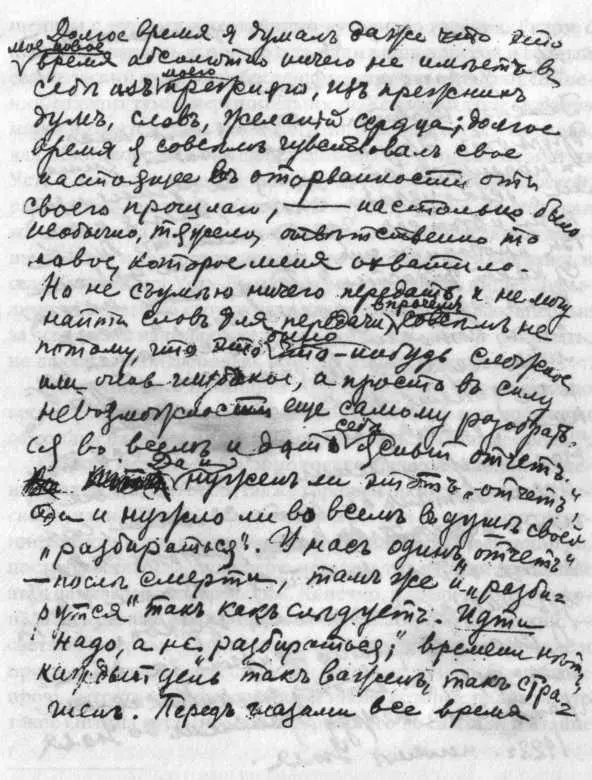 Долгое время я думалъ даже что это
мое новое
время абсолютно ничего не имѣетъ въ
моего
себѣ изъ прежняго, изъ прежнихъ
думъ, словъ, желаній сердца; долгое
время я совсѣмъ чувствовалъ свое
настоящее въ оторванности отъ
своего прошлаго, — настолько было
необычно, тяжело, отвѣтственно то
новое, которое меня охватило.
Но не съумѣю ничего передать и не могу
впрочемъ
найти словъ для передачи совсѣмъ не
было
потому, что это что-нибудь сложное
или очень глубокое, а просто въ силу
невозможности еще самому разобрать-
себѣ
ся во всемъ и дать ясный отчетъ.
Да и
нуженъ ли этотъ „отчетъ“
и нужно ли во всемъ въ душѣ своей
„разбираться“. У насъ одинъ „отчетъ“
— послѣ смерти, тамъ же и „разбе-
рутся“ такъ какъ слѣдуетъ. Идти
надо, а не „разбираться“; времени нѣтъ,
каждый день такъ важенъ, такъ стра-
шенъ. Передъ глазами все время